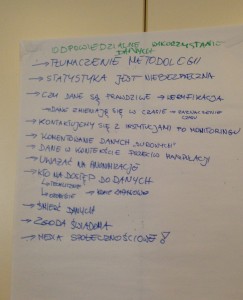 ODPOWIEDZIALNE WYKORZYSTANIE
DANYCH
→ TŁUMACZENIE METODOLOGII
→ STATYSTYKA JEST NIEBEZPIECZNA
→ CZY DANE SĄ PRAWDZIWE → WERYFIKACJA
DANE ZMIENIAJĄ SIĘ W CZASIE →
→ KONTAKTUJMY SIĘ Z INSTYTUCJAMI PO MONITORINGU
→ KOMENTOWANIE DANYCH „SUROWYCH"
→ DANE W KONTEKŚCIE PRZECIW MANIPULACJI
→ UWAŻAĆ NA ANIMIZACJĘ
→ KTO MA DOSTĘP DO DANYCH
→ ŚMIERĆ DANYCH
→ ZGODA ŚWIADOMA
→ MEDIA SPOŁECZNOŚCIOWE